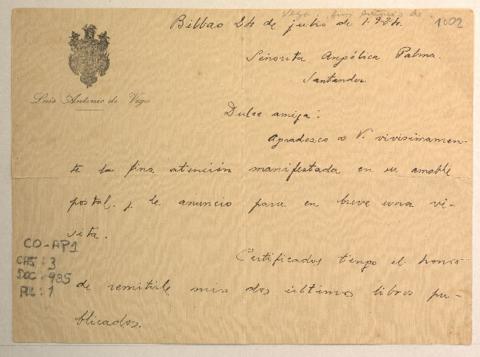 Vega, Luis Antonio de
1002
Bilbao 24 de julio de 1.924.
Señorita Angélica Palma.
Santander
Luis Antonio de Vega
Dulce amiga:
Agradezco a V. vivisimamen-
te la fina atención manifestada en su amable
postal, y le anuncio para en breve una vi-
sita.
Certificados tengo el honor
de remitirle mis dos últimos libros pu-
blicados.
CO-AP1
CAJ: 3
DOC: 985
FL: 1